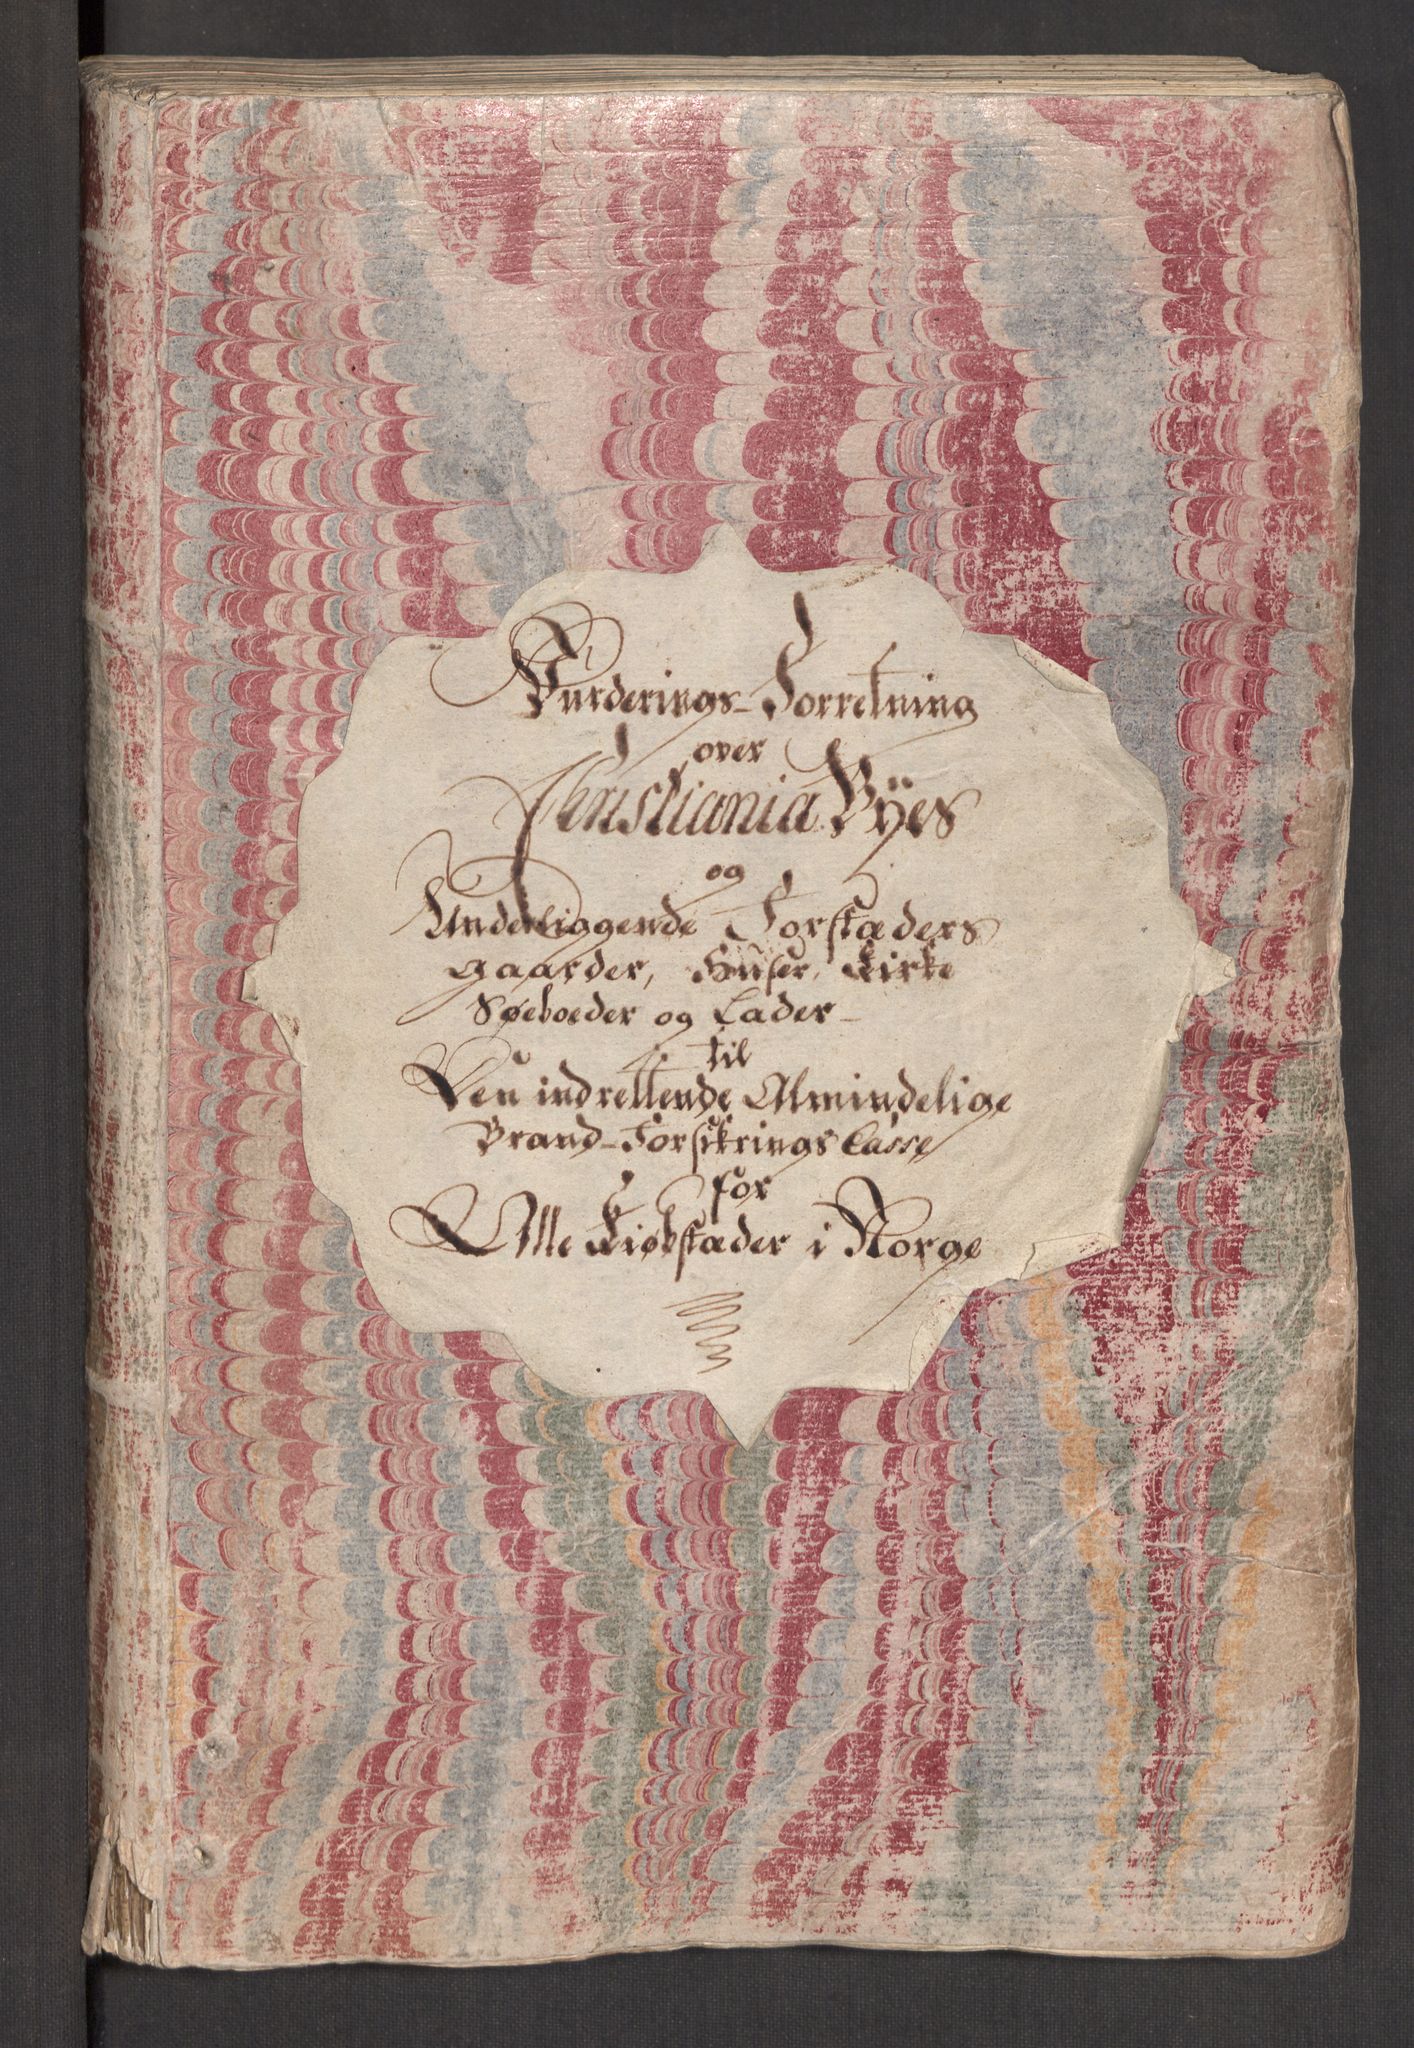 Vurderings-Forretning
over
Christiania Bÿes
og
Underliggende Forstæders
gaarder, Huser, Kirke
Søeboeder og Lader-
til
Den indrettende Almindelige
Brand-Forsikrings Casse
for
Alle Kiøbstæder i Norge